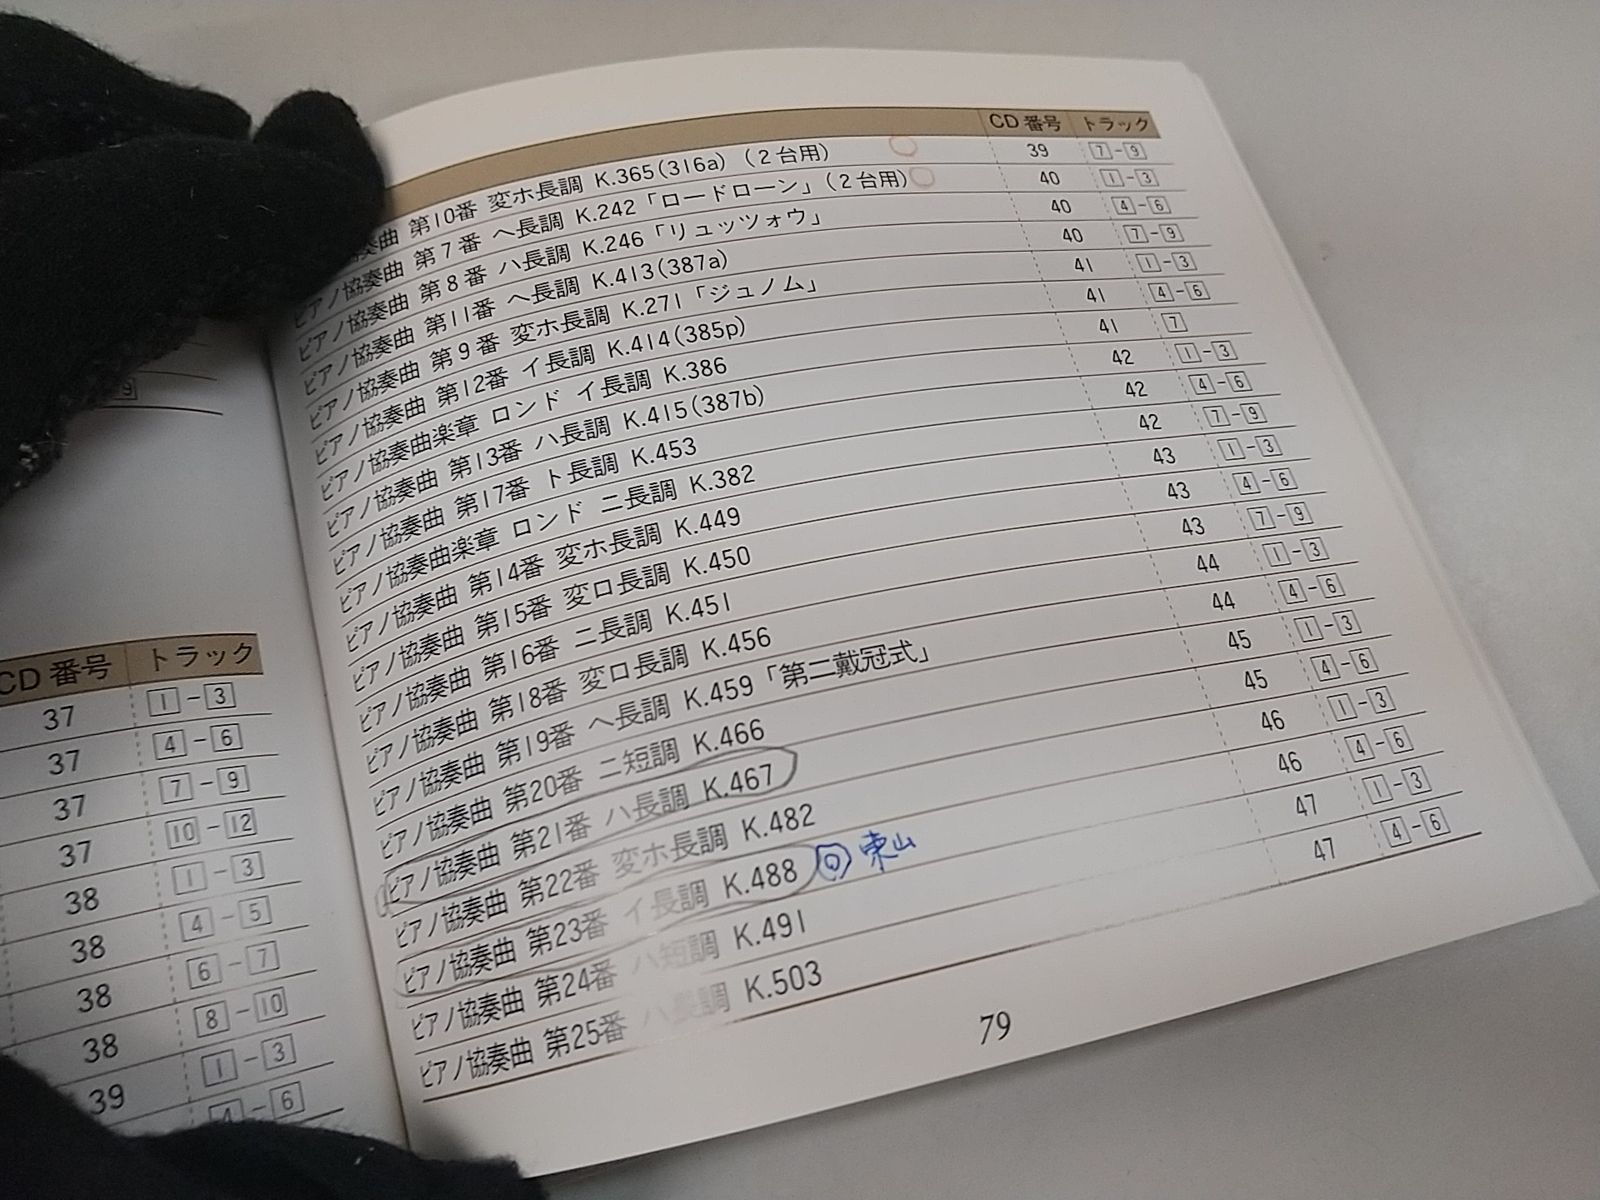 9
CD 番号 トラック
37 1-3
37 4-6
37 7-9
37 10-12
38 1-3
38 4-5
38 6-7
38 8-10
39 1-3
4-6
CD 番号 トラック
奏曲 第10番 変ホ長調 K.365(316a) (2台用) 39 7-9
ピアノ協奏曲 第7番 ヘ長調 K.242「ロードローン」(2台用) 40 1-3
ピアノ協奏曲 第8番 ハ長調 K.246「リュッツォウ」 40 4-6
ピアノ協奏曲 第11番 ヘ長調 K.413(387a) 40 7-9
ピアノ協奏曲 第9番 変ホ長調 K.271「ジュノム」 41 1-3
ピアノ協奏曲 第12番 イ長調 K.414(385p) 41 4-6
ピアノ協奏曲楽章 ロンド イ長調 K.386 41 7
ピアノ協奏曲 第13番 ハ長調 K.415(387b) 42 1-3
ピアノ協奏曲 第17番 ト長調 K.453 42 4-6
ピアノ協奏曲楽章 ロンド ニ長調 K.382 42 7-9
ピアノ協奏曲 第14番 変ホ長調 K.449 43 1-3
ピアノ協奏曲 第15番 変ロ長調 K.450 43 4-6
ピアノ協奏曲 第16番 ニ長調 K.451 43 7-9
ピアノ協奏曲 第18番 変ロ長調 K.456 44 1-3
ピアノ協奏曲 第19番 ヘ長調 K.459「第二戴冠式」 44 4-6
ピアノ協奏曲 第20番 ニ短調 K.466 45 1-3
ピアノ協奏曲 第21番 ハ長調 K.467 45 4-6
ピアノ協奏曲 第22番 変ホ長調 K.482 46 1-3
ピアノ協奏曲 第23番 イ長調 K.488 東山 46 4-6
ピアノ協奏曲 第24番 ハ短調 K.491 47 1-3
ピアノ協奏曲 第25番 ハ長調 K.503 47 4-6
79